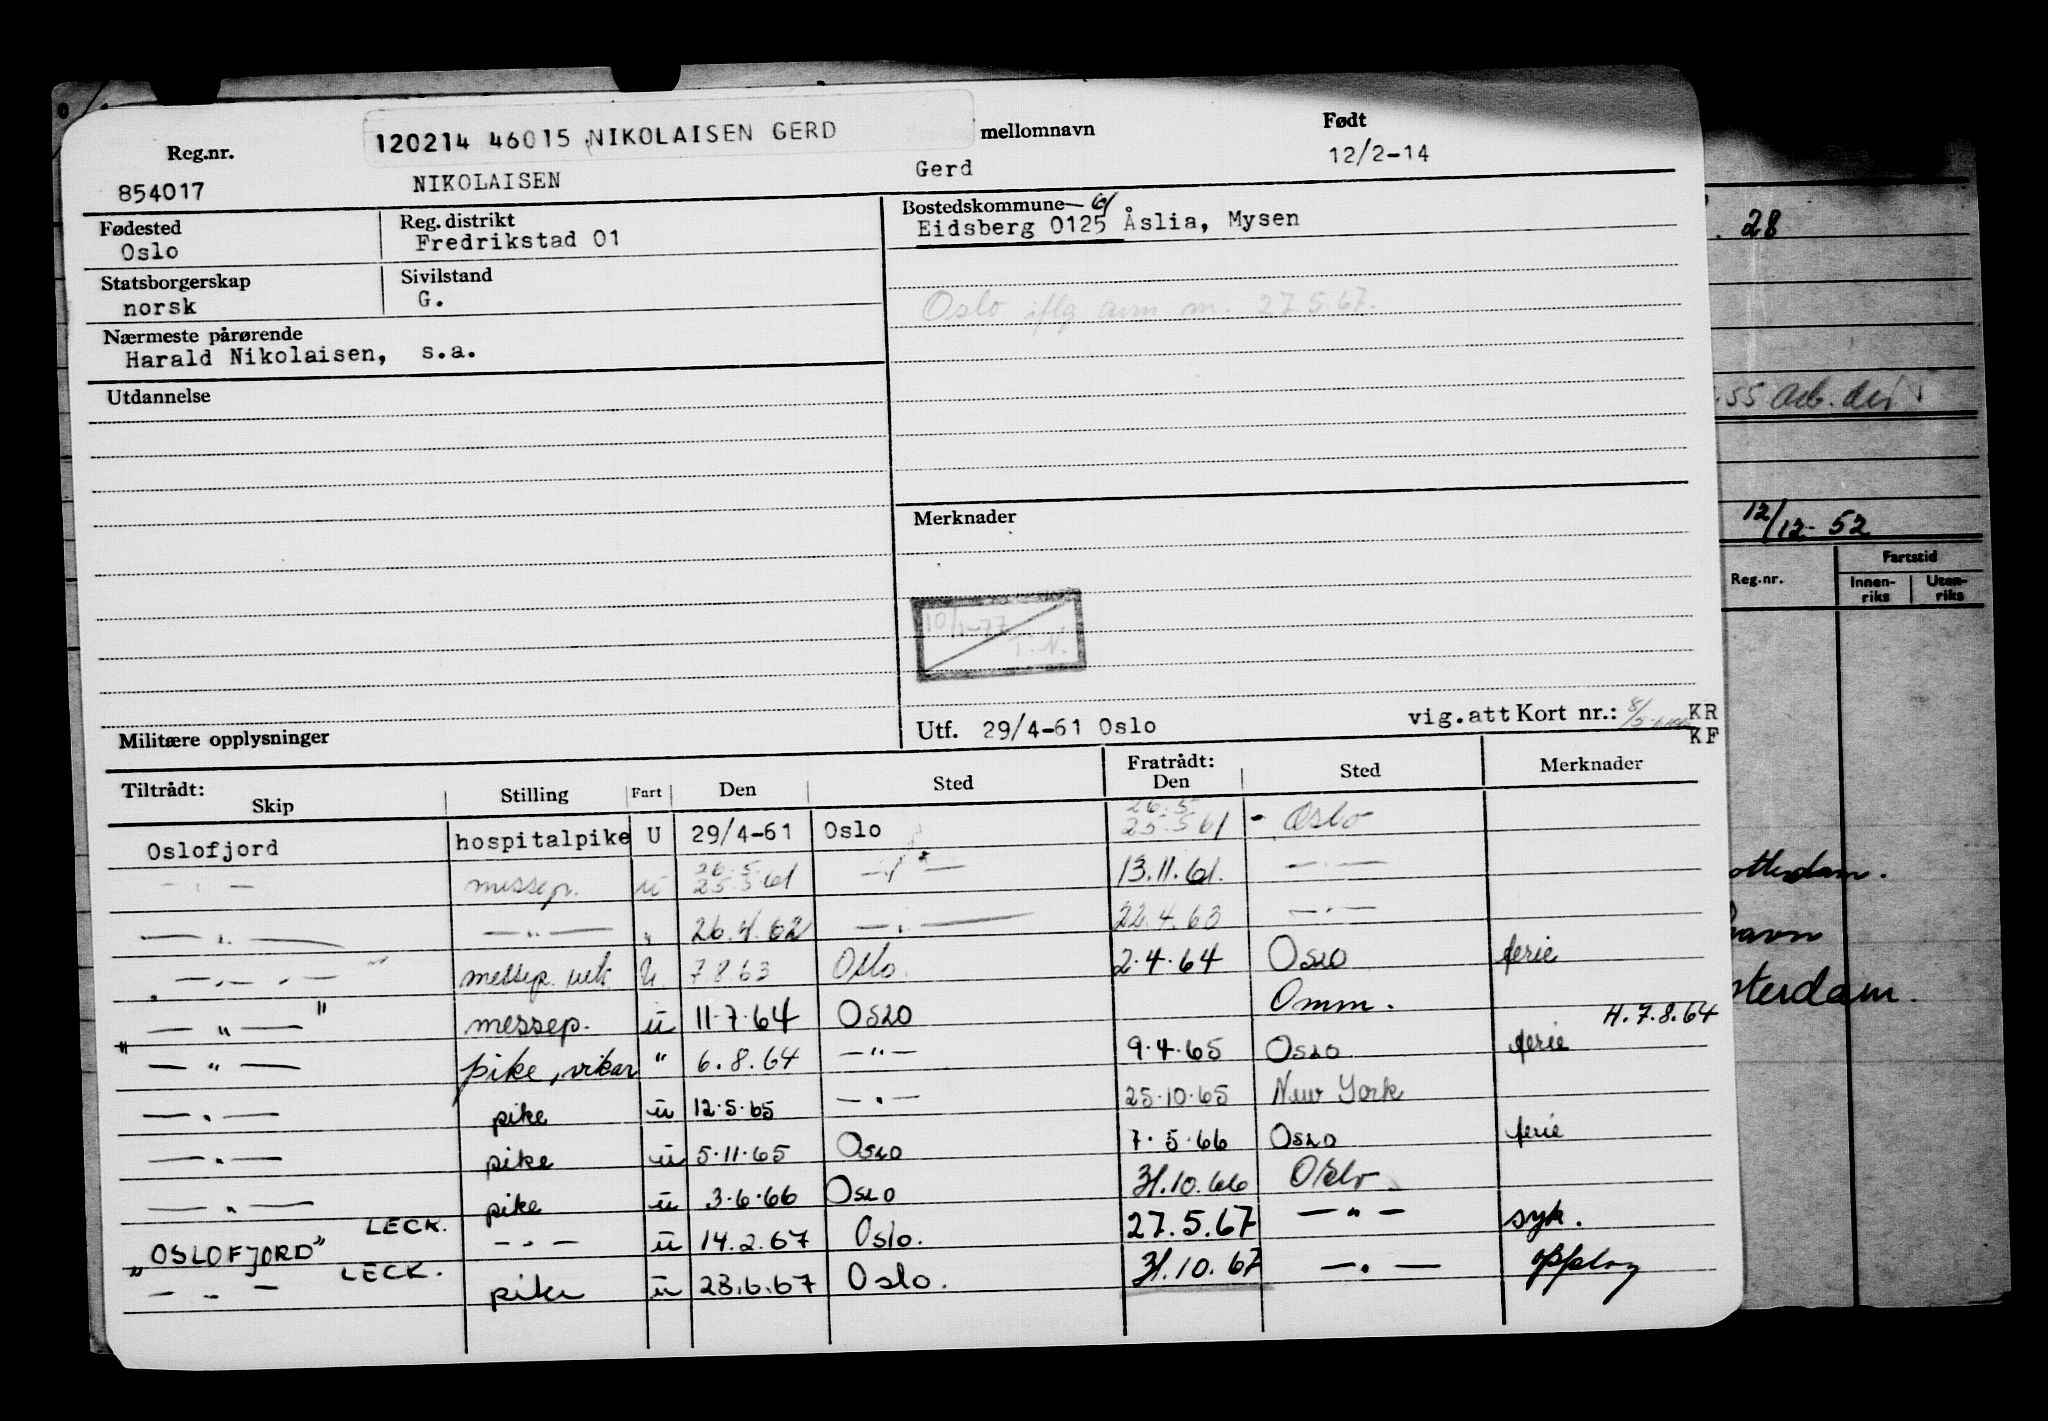 120214 46015 NIKOLAISEN GERD
Reg.nr. mellomnavn Født
854017 NIKOLAISEN Gerd 12/2-14
Fødested Reg. distrikt Bostedskommune - 61
Oslo Fredrikstad 01 Eidsberg 0125 Åslia, Mysen
Statsborgerskap Sivilstand
norsk G.
Oslo iflg avm m. 27.5.67.
Nærmeste pårørende
Harald Nikolaisen, s.a.
Utdannelse
Merknader
10/1-77
T.N.
Militære opplysninger
Utf. 29/4-61 Oslo vig.att Kort nr.: KR
KF
Tiltrådt: Fratrådt:
Skip Stilling Fart Den Sted Den Sted Merknader
Oslofjord hospitalpike U 29/4-61 Oslo 26.5 25.5 61 - Oslo
— " — messep. ū 26.5. 25.5 61 — " — 13.11.61. — " —
— " — — " — " 26.4.62 — " — 22.4.63 — " —
— " — messep. vik. ū 7.8.63 Oslo. 2.4.64 Oslo ferie
" — " — " messep. ū 11.7.64 Oslo Omm. H.7.8.64
— " — pike, vikar " 6.8.64 — " — 9.4.65 Oslo ferie
— " — pike ū 12.5.65 — " — 25.10.65 New York
— " — pike ū 5.11.65 Oslo 7.5.66 Oslo ferie
— " — pike ū 3.6.66 Oslo 31.10.66 Oslo.
"OSLOFJORD" LECK. — " — ū 14.2.67 Oslo. 27.5.67 — " — syk.
— " — LECK. pike ū 23.6.67 Oslo. 31.10.67 — " — opplag
. 28
.55 arb.
12/12-52
Fartstid
Reg.nr. Innen-riks Uten-riks
otterdam.
havn
sterdam.